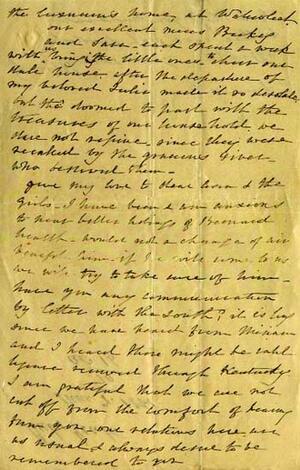 the                  home, at
our excellent         Becky
and Sara each spent a week
with     the little ones to cheer our
    house, after the departure of
my beloved Julia made it so desolate
but tho' doomed to part with the
treasures of our household, we
dare not repine, since they were
recalled by the gracious Giver
who bestowed them—
give my love to dear        & the
girls— I have been &    anxious
to hear better tidings of
health— would not a change of air
        him— if he will come to us
we will try to take care of him—
have you any communication
by letter with the South? it is long
since we have heard from Miriam
and I heard there might be
           through Kentucky
I am grateful that we are not
cut off from the comfort of hearing
from you— our relations here are
as usual & always desire to be
remembered to you